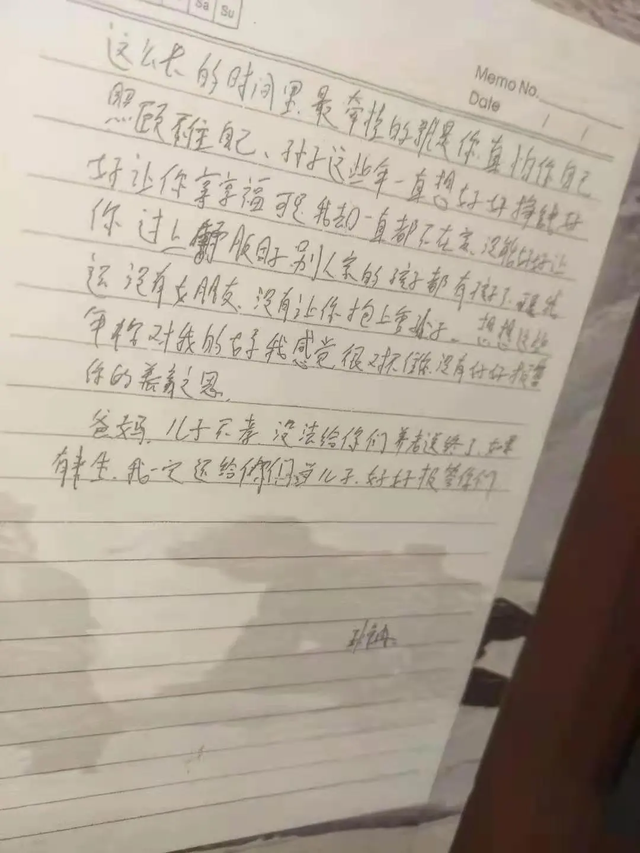 Sa
Su
Memo No.
Date / /
这么长的时间里.最牵挂的就是你.真怕你自己
照顾不住自己、孙子这些年一直想好好挣钱好
好让你享享福可是我却一直都不在家.没能好好让
你过上舒服日子.别人家的孩子都有孩子了.可是我
还没有女朋友.没有让你抱上重孙子.想想这些
年你对我的好我感觉很对不住你.没有好好报答
你的养育之恩.
爸妈.儿子不孝.没法给你们养老送终了.如果
有来生.我一定还给你们当儿子.好好报答你们